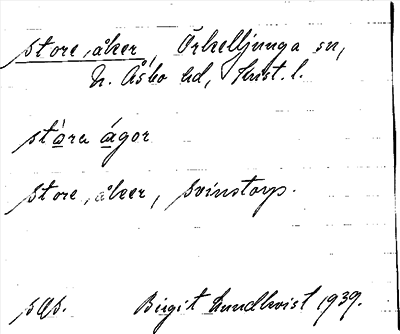 store åker, Örkelljunga sn,
N. Åsbo hd, Krist. l.
stára ágor
store åker, svinstorp.
sgs. Birgit Lundkvist 1939.